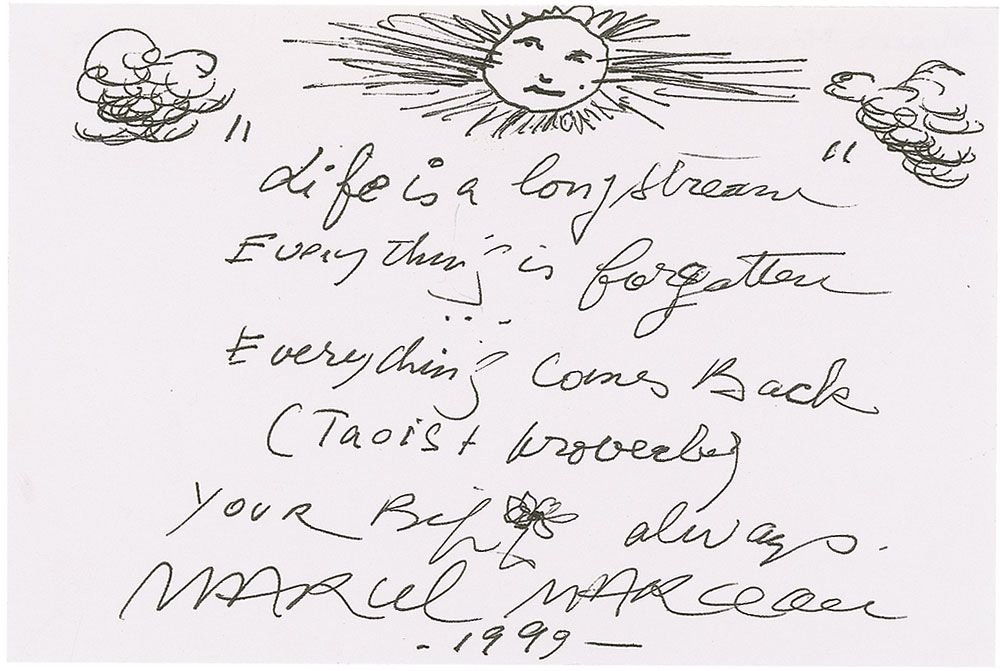 "Life is a long stream"
Everything is forgotten
...
Everything comes Back
(Taoist proverbe)
YOUR Bip always.
MARCEL MARCEAU
- 1999 -